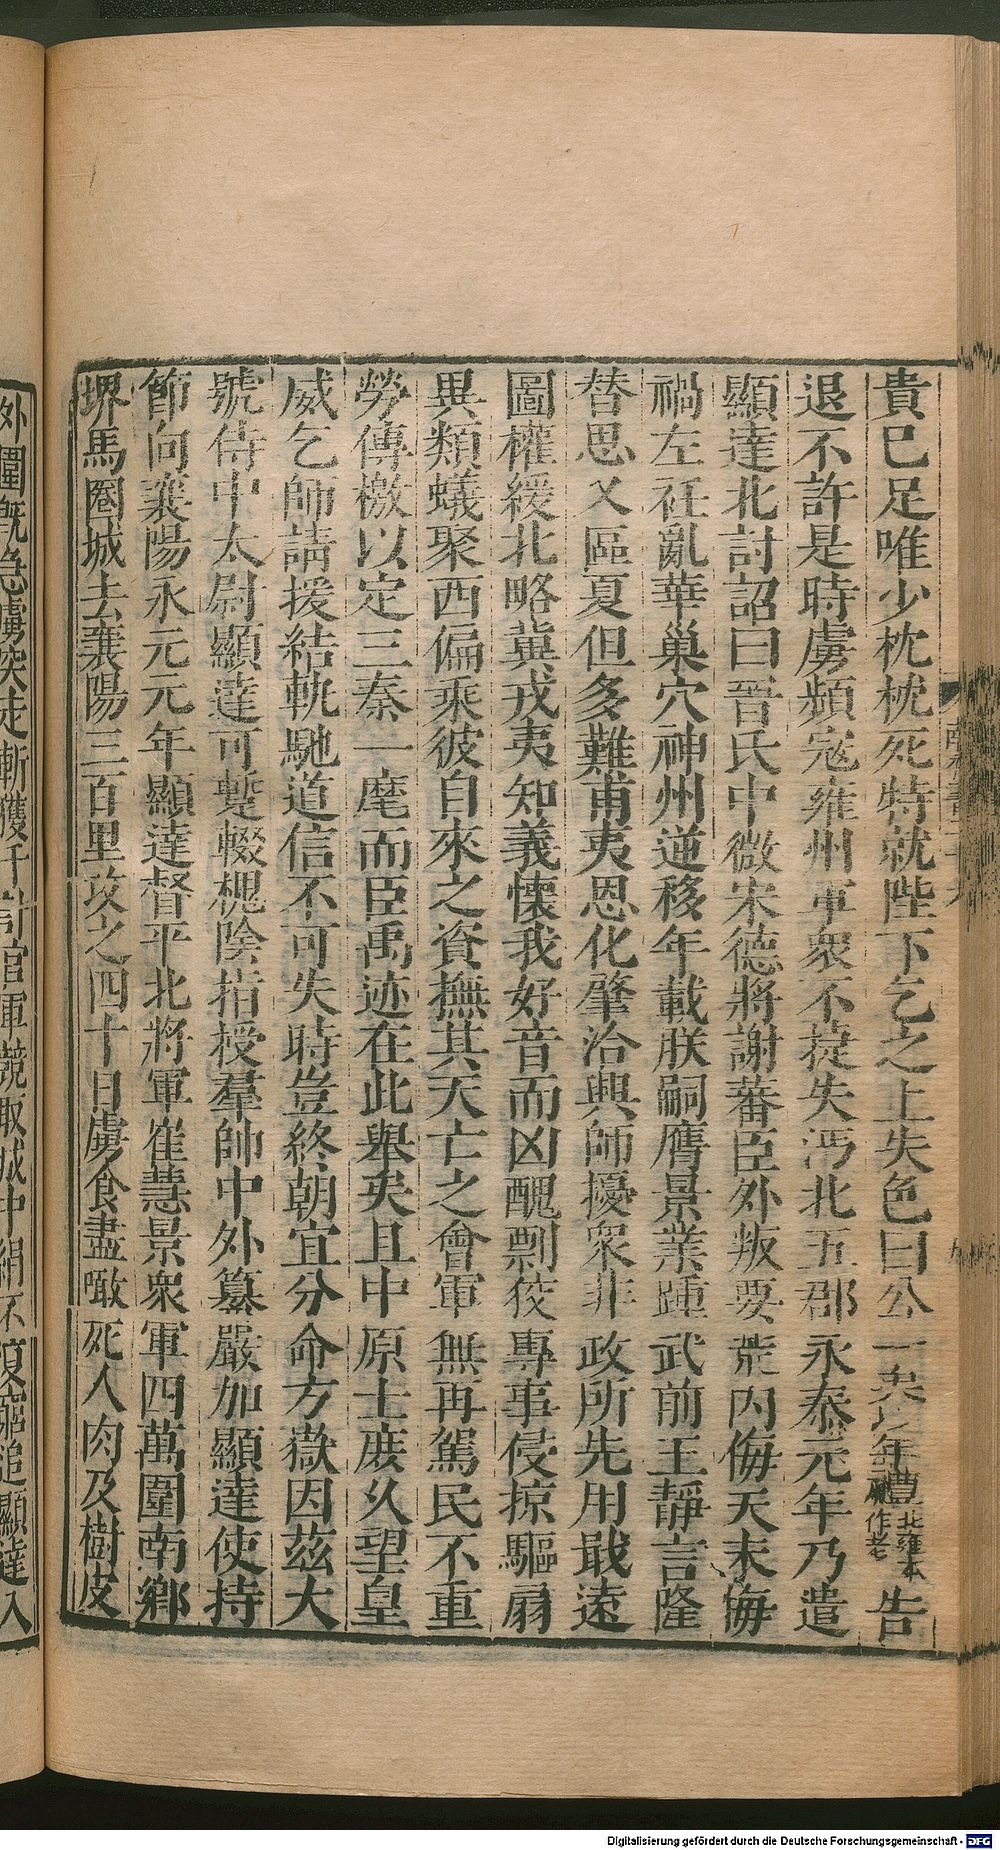 貴已足唯少枕枕死特就陛下乞之上失色曰公醉矣以年禮北雍本禮作老告
退不許是時虜頻寇雍州軍衆不捷失沔北五郡永泰元年乃遣
顯達北討詔曰晉氏中微宋德將謝蕃臣外叛要荒內侮天未悔
禍左衽亂華巢穴神州逆移年載朕嗣膺景業踵武前王靜言隆
替思乂區夏但多難甫夷恩化肇洽興師擾衆非政所先用戢遠
圖權緩北略冀戎夷知義懷我好音而凶醜剽狡專事侵掠驅扇
異類蟻聚西偏乘彼自來之資撫其天亡之會軍無再駕民不重
勞傳檄以定三秦一麾而臣禹迹在此舉矣且中原士庶久望皇
威乞師請援結軌馳道信不可失時豈終朝宜分命方嶽因茲大
號侍中太尉顯達可蹔輟槐陰指授羣帥中外纂嚴加顯達使持
節向襄陽永元元年顯達督平北將軍崔慧景衆軍四萬圍南鄉
堺馬圈城去襄陽三百里攻之四十日虜食盡噉死人肉及樹皮
外圍既急虜突走斬獲千計官軍競取城中絹不復窮追顯達入
Digitalisierung gefördert durch die Deutsche Forschungsgemeinschaft - DFG